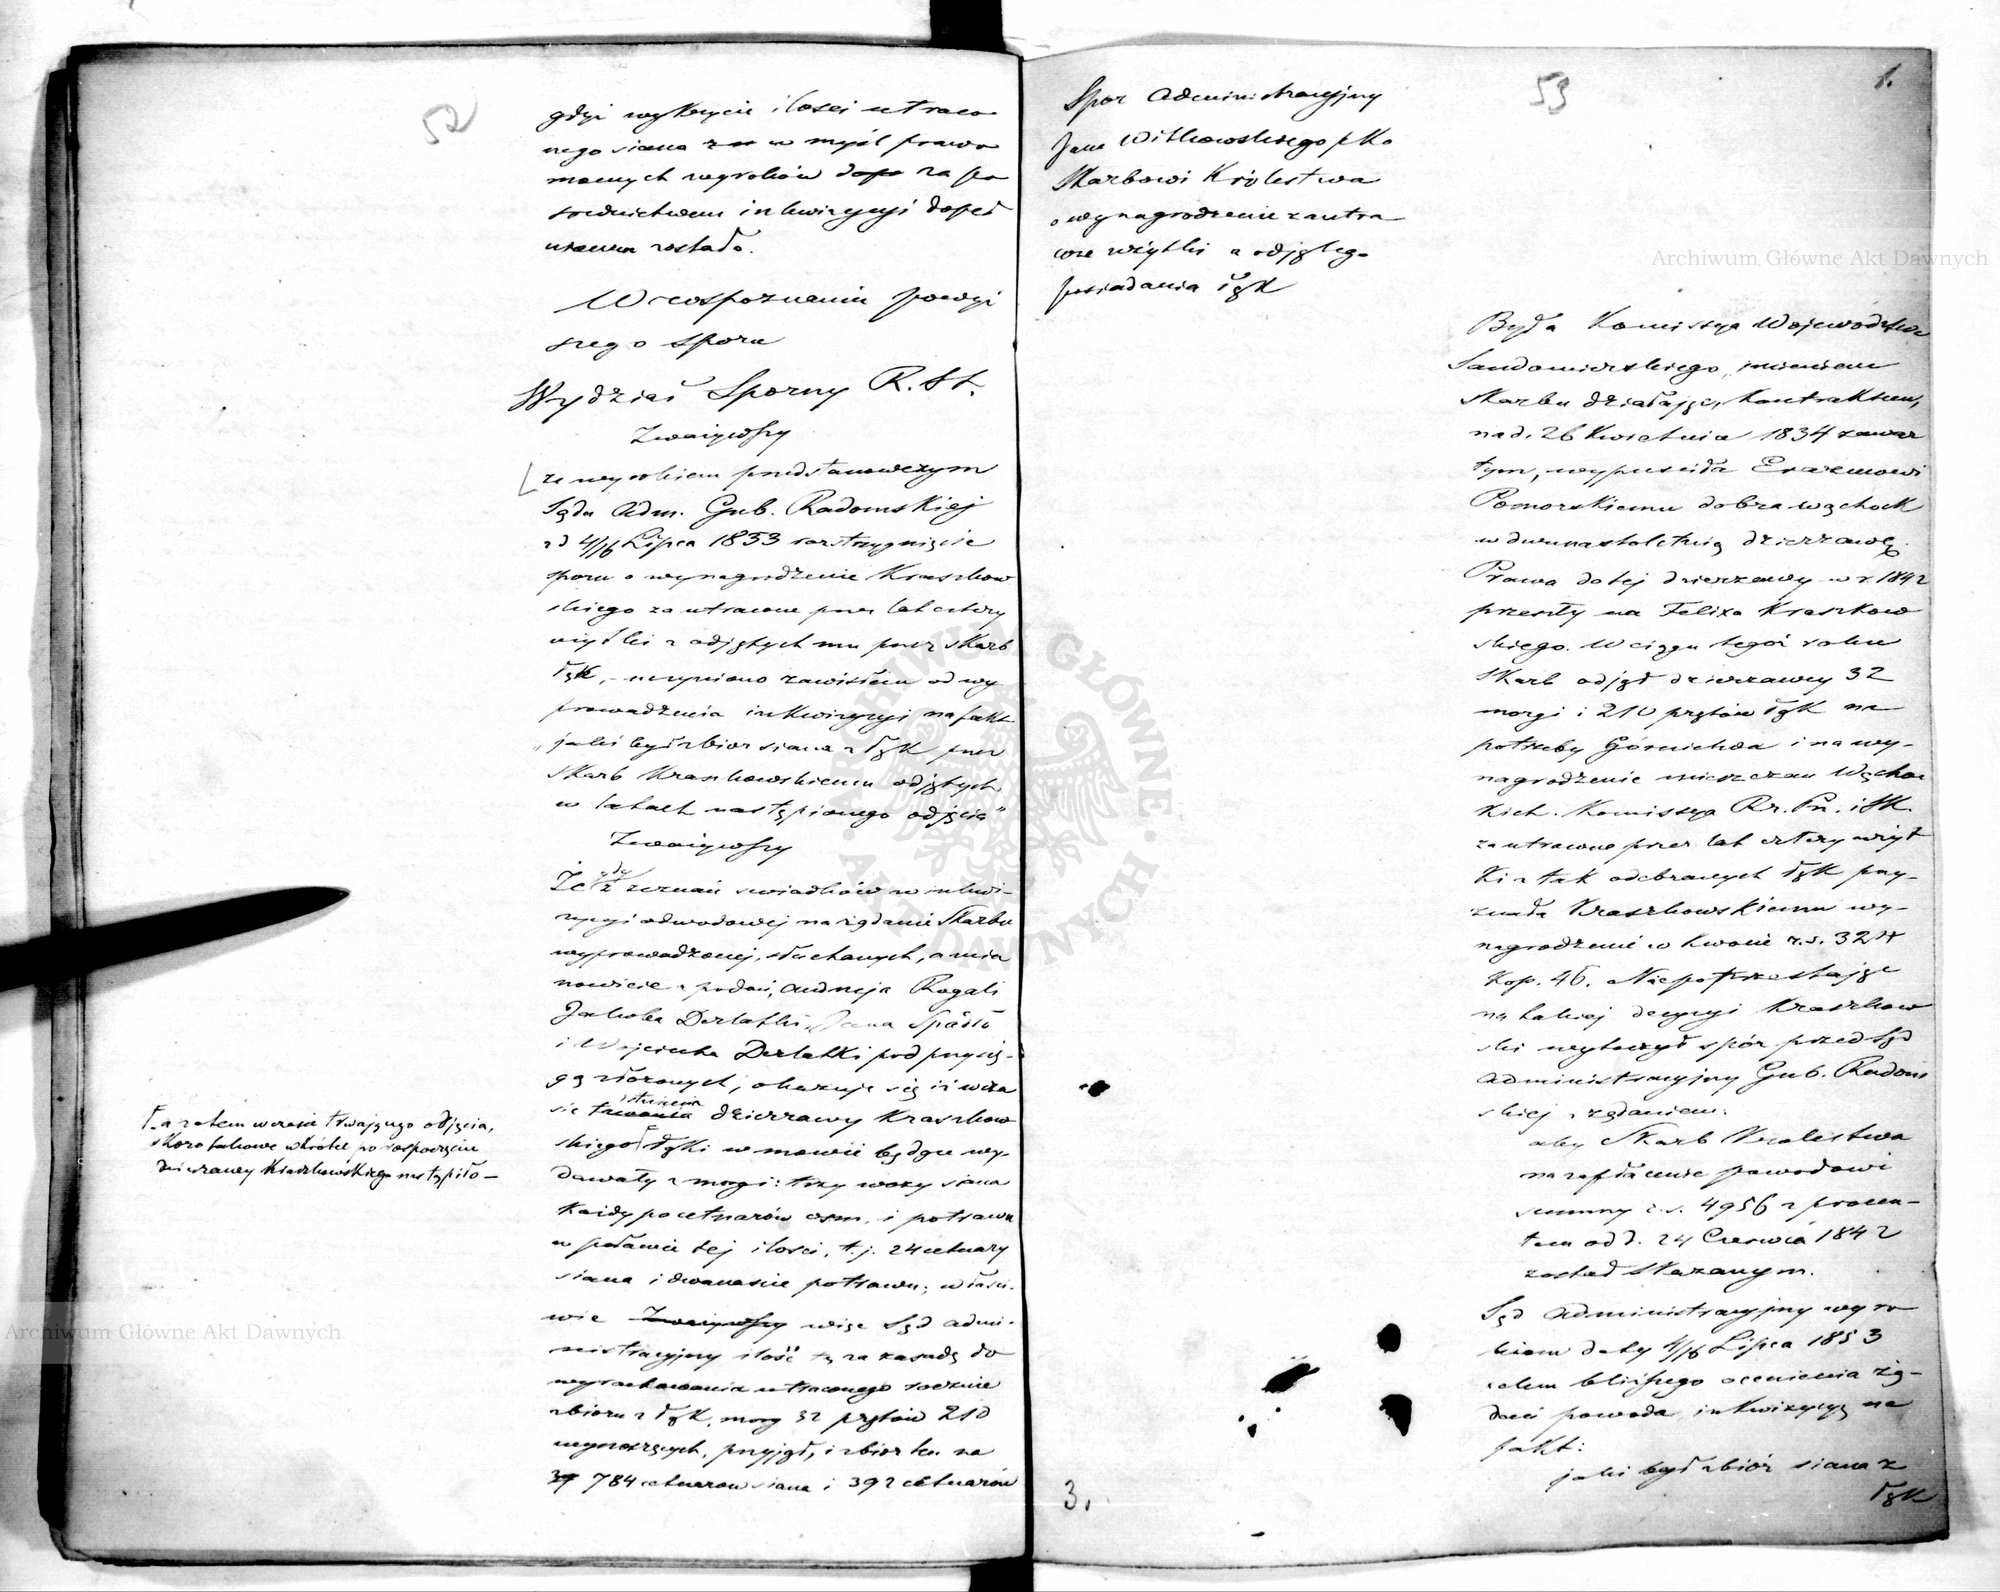 52
gdyż wykrycie ilości utraco
nego siana w myśl prawo
mocnych wyroków za po
średnictwem inkwizycyi dopeł
nionem zostało.
W rozpoznaniu powyż
szego sporu
Wydział Sporny R. St.
Zważywszy
że wyrokiem przedstanowczym
Sądu Adm. Gub. Radomskiej
z d 4/16 Lipca 1853 rozstrzygnięcie
sporu o wynagrodzenie Kraszkow
skiego za utracone przez lat cztery
użytki z odjętych mu przez Skarb
łąk, uczyniono zawisłem od wy
prowadzenia inkwizycyi na fakt
„jaki był zbiór siana z łąk przez
Skarb Kraszkowskiemu odjętych
w latach nastąpionego odjęcia"
Zważywszy
Że gdy z zeznań świadków w inkwi-
zycyi odwodowej na żądanie Skarbu
wyprowadzonej, słuchanych, a mia
nowicie z podań, Andrzeja Rogali
Jakóba Derlatki, Jana Spadło
i Wojciecha Derlatki pod przysię-
gą złożonych, okazuje się iż w cza
sie trwania dzierżawy Kraszkow
skiego łąki w mowie będące wy-
dawały z morgi: trzy wozy siana
każdy po cetnarów osm, i potrawu
w połowie tej ilości, t. j. 24 cetnary
siana i dwanaście potrawu; właści-
wie Zważywszy więc Sąd admi-
nistracyjny ilość tę za zasadę do
wyrachowania utraconego rocznie
zbioru z łąk, morg 32 prętów 210
wynoszących, przyjął, i zbiór ten na
784 cetnarów siana i 392 cetnarów
a zatem w czasie trwającego odjęcia,
skoro takowe wkrótce po rozpoczęciu
dzierżawy Kraszkowskiego nastąpiło –
53
1.
Spor Administracyjny
Jana Witkowskiego pko
Skarbowi Królestwa
o wynagrodzenie za utra
cone użytki z odjętego
posiadania łąk
Była Komissya Województwa
Sandomierskiego, imieniem
Skarbu działając, kontraktem,
na d. 26 Kwietnia 1834 zawar
tym, wypuściła Erazmowi
Pomorskiemu dobra Wąchock
w dwunastoletnią dzierżawę.
Prawa do tej dzierżawy w r. 1842
przeszły na Felixa Kraszkow
skiego. W ciągu tegoż roku
Skarb odjął dzierżawcy 32
morgi i 210 prętów łąk na
potrzeby Górnictwa i na wy-
nagrodzenie mieszczan Wącho
kich. Komissya Rz. Pr. i Sk.
za utracone przez lat cztery użyt
ki z tak odebranych łąk przy-
znała Kraszkowskiemu wy-
nagrodzenie w kwocie r.s. 324
kop. 46. Nieposprzestając
na takiej decyzyi Kraszkow
ski wytoczył spór przed Sąd
Administracyjny Gub. Radom
skiej z żądaniem:
aby Skarb Królestwa
na zapłacenie powodowi
summy r.s. 4956 z procen-
tem od d. 24 Czerwca 1842
został skazanym.
Sąd administracyjny wyro
kiem daty 4/16 Lipca 1853
celem bliższego ocenienia żą-
dań powoda inkwizycyę na
fakt:
jaki był zbiór siana z
łąk
3.
Archiwum Główne Akt Dawnych
Archiwum Główne Akt Dawnych
ARCHIWUM GŁÓWNE AKT DAWNYCH